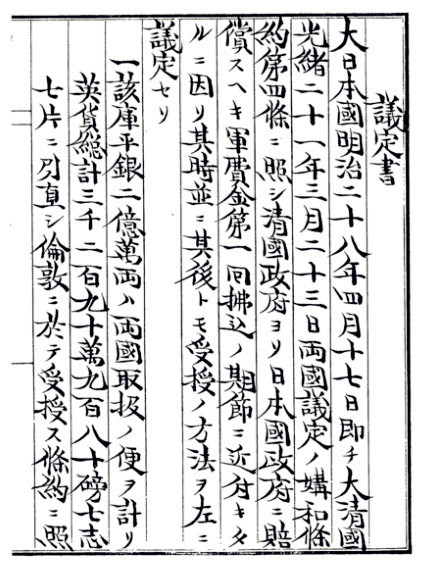 議定書
大日本國明治二十八年四月十七日即チ大清國
光緒二十一年三月二十三日両國議定ノ媾和條
約第四條ニ照シ清國政府ヨリ日本國政府ニ賠
償スヘキ軍費金第一回拂込ノ期節ニ近付キタ
ルニ因リ其時並ニ其後トモ受授ノ方法ヲ左ニ
議定セリ
一該庫平銀二億萬両ハ両國取扱ノ便ヲ計リ
英貨總計三千二百九十萬九百八十磅七志
七片ニ引直シ倫敦ニ於テ受授ス條約ニ照